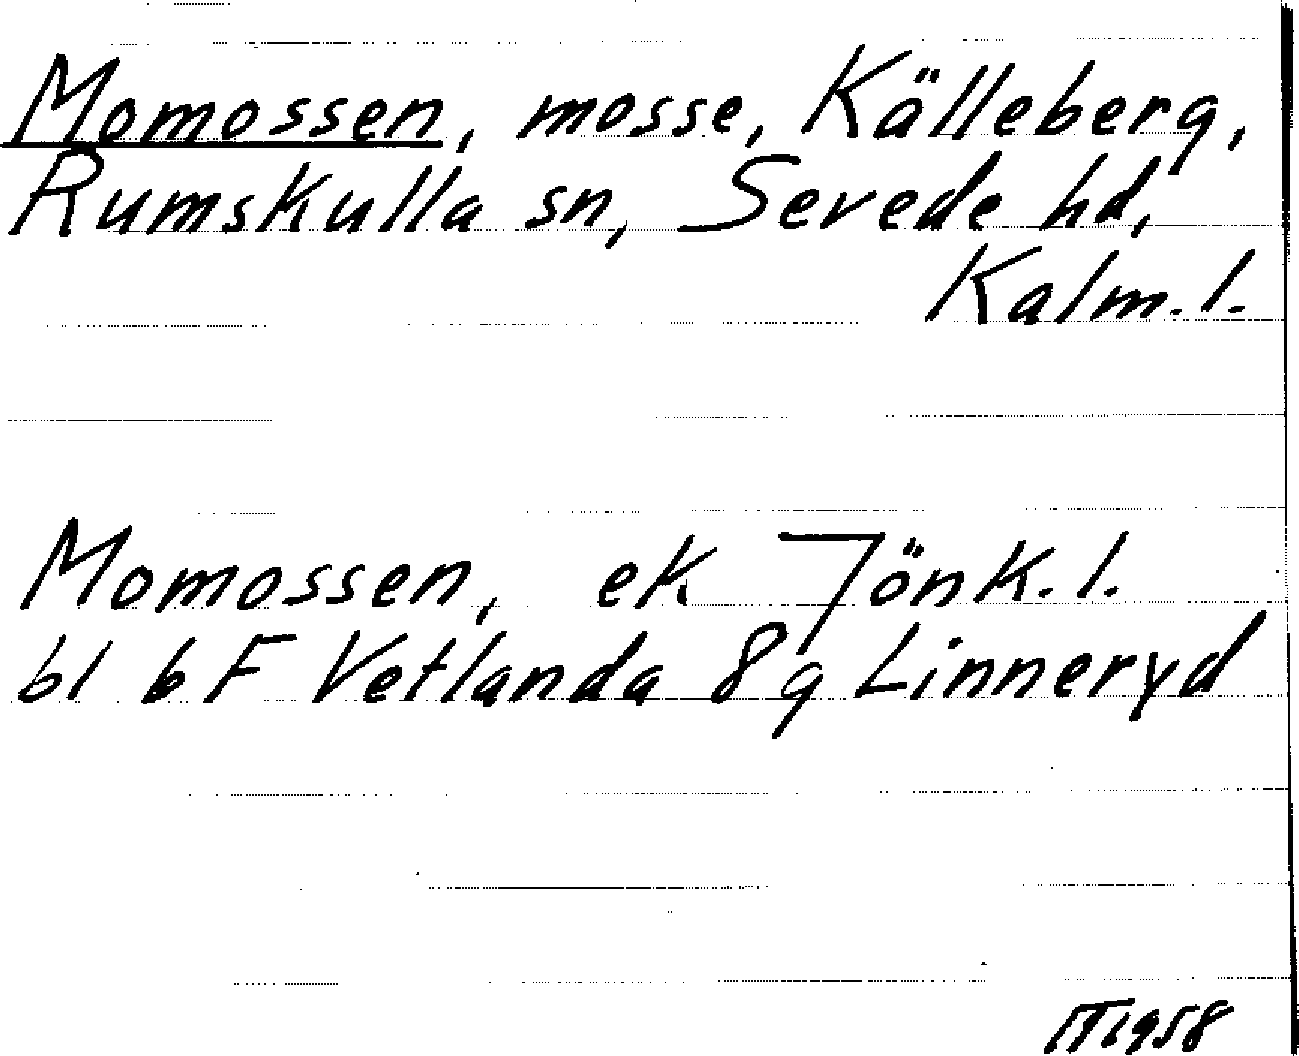 Momossen, mosse, Källeberg,
Rumskulla sn, Sevede hd,
Kalm. l.
Momossen, ek Jönk. l.
bl 6 F Vetlanda 8g Linneryd
1958